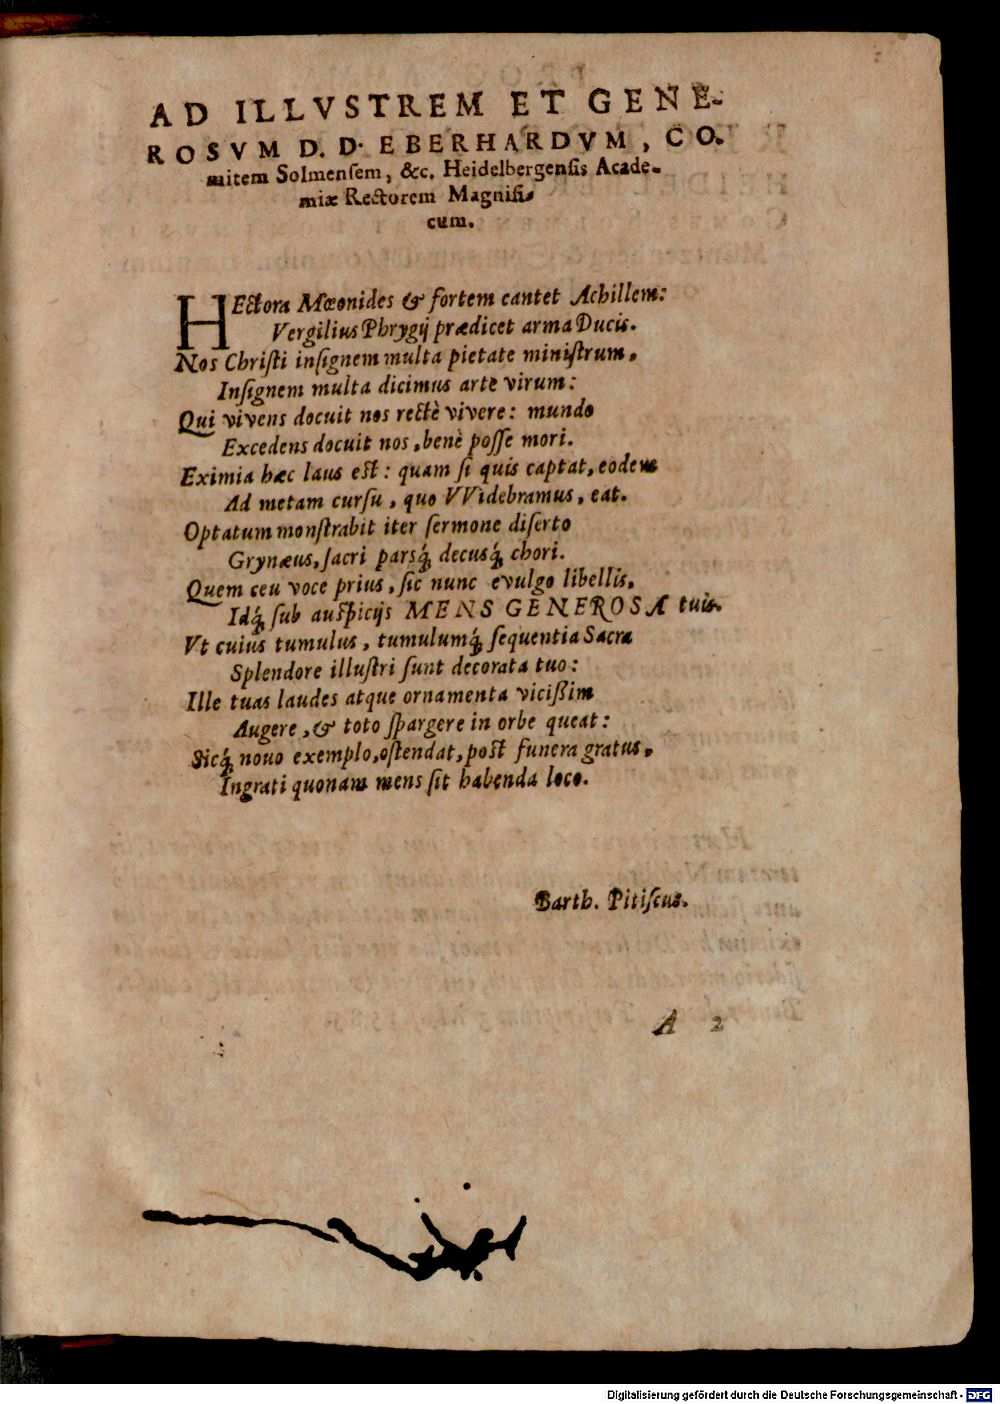 AD ILLVSTREM ET GENE-
ROSVM D. D. EBERHARDVM, CO.
mitem Solmenſem, &c. Heidelbergenſis Acade-
miæ Rectorem Magnifi-
cum.
HEctora Mæonides & fortem cantet Achillem:
Vergilius Phrygij prædicet arma Ducis.
Nos Chriſti inſignem multa pietate miniſtrum,
Inſignem multa dicimus arte virum:
Qui vivens docuit nos rectè vivere: mundo
Excedens docuit nos, benè poſſe mori.
Eximia hæc laus eſt: quam ſi quis captat, eodem
Ad metam curſu, quo VVidebramus, eat.
Optatum monſtrabit iter ſermone diſerto
Grynæus, ſacri parsq́; decusq́; chori.
Quem ceu voce prius, ſic nunc evulgo libellis,
Idq́; ſub auſpicijs MENS GENEROSA tuis.
Vt cuius tumulus, tumulumq́; ſequentia Sacra
Splendore illuſtri ſunt decorata tuo:
Ille tuas laudes atque ornamenta viciſſim
Augere, & toto ſpargere in orbe queat:
Sicq́; nouo exemplo, oſtendat, poſt funera gratus,
Ingrati quonam mens ſit habenda loco.
Barth. Pitiſcus.
A 2
Digitalisierung gefördert durch die Deutsche Forschungsgemeinschaft - DFG